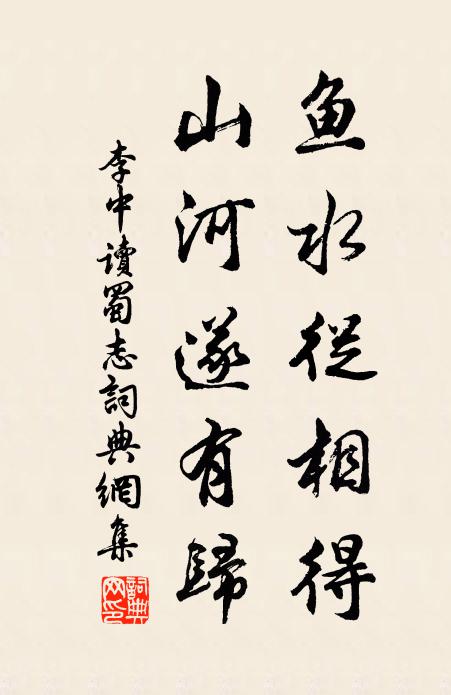 鱼水從相得
山河遂有歸
李中讀蜀志詞典網集
詞典網印